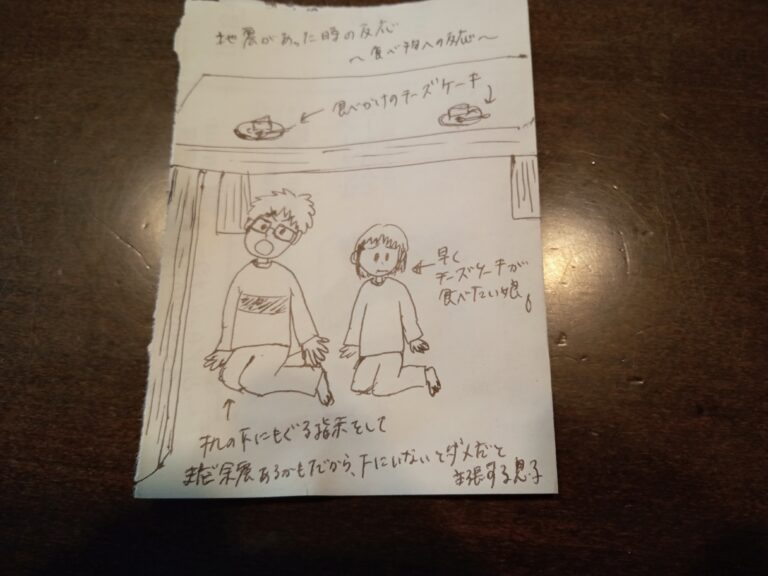 地震があった時の反応
～食べ物への反応～
食べかけのチーズケーキ
早く
チーズケーキが
食べたい娘
机の下にもぐる指示をして
まだ余震あるかもだから、下にいないとダメだと
主張する息子